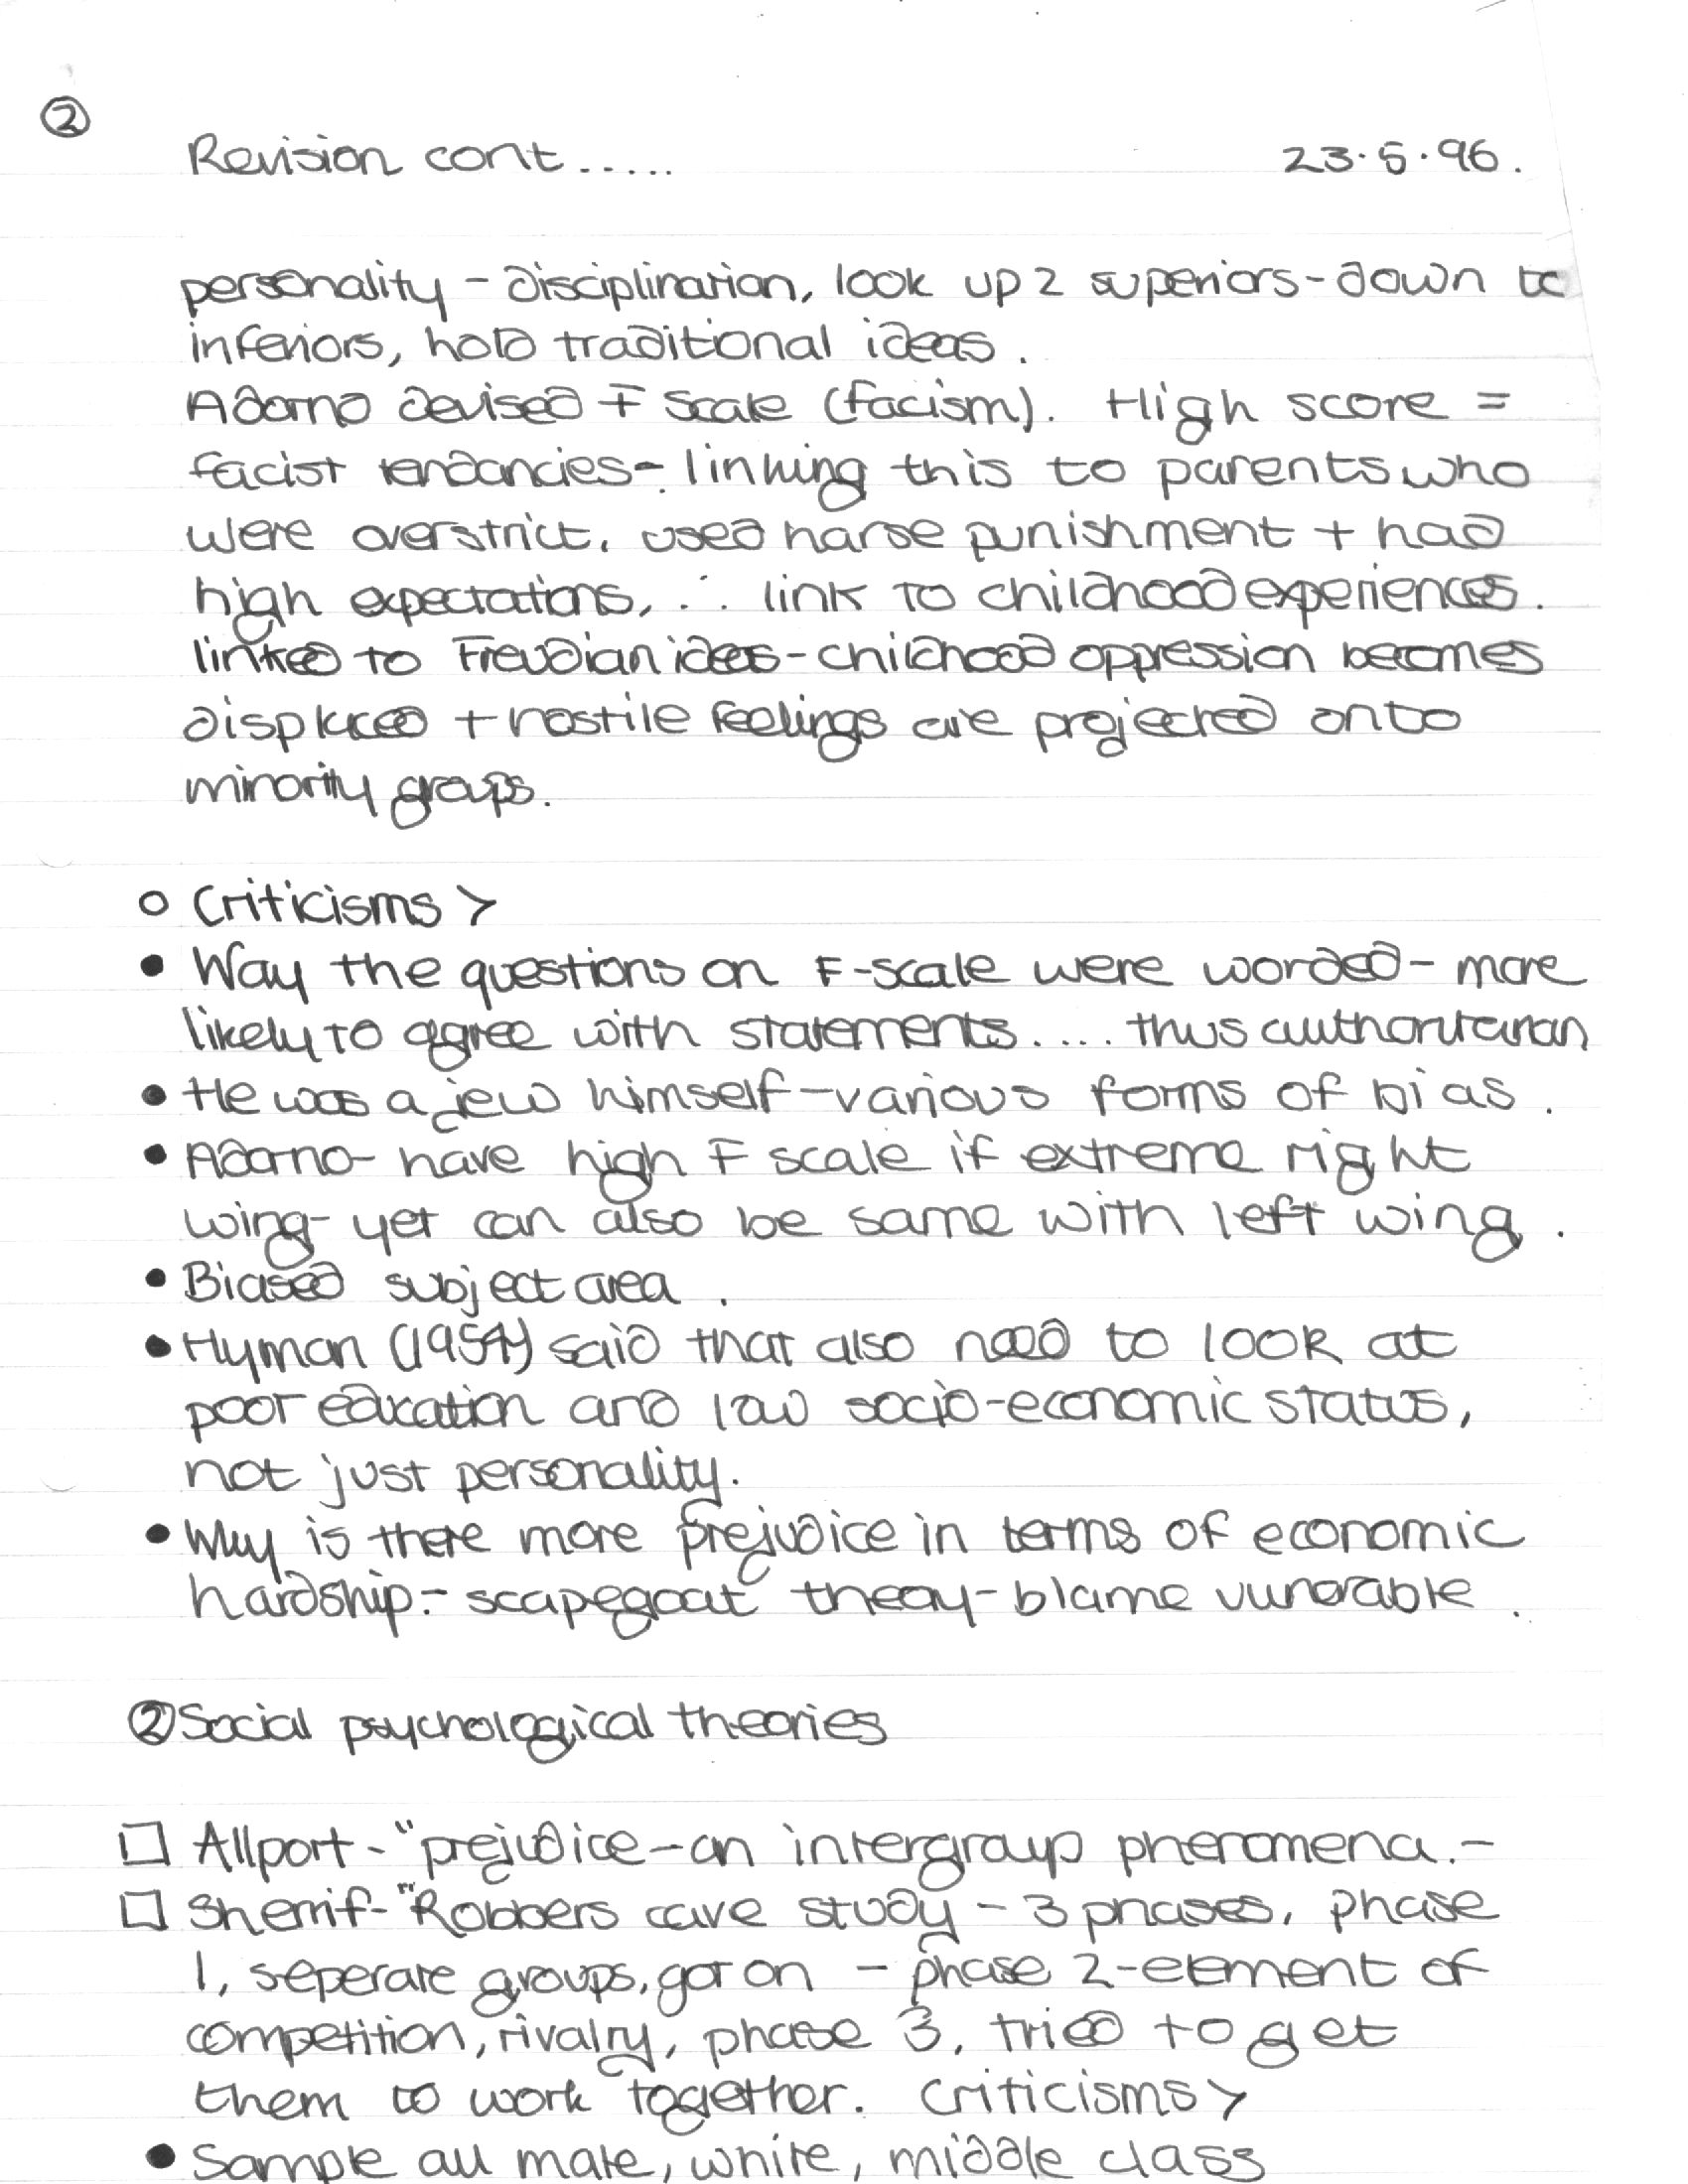 ②
Revision cont..... 23.5.96.
personality - disciplination, look up 2 superiors - down to
inferiors, hold traditional ideas.
Adorno devised F Scale (facism). High score =
facist tendancies - linking this to parents who
were overstrict, used harse punishment + had
high expectations, ∴ link to childhood experiences.
linked to Freudian ideas - childhood oppression becomes
displaced + hostile feelings are projected onto
minority groups.
○ Criticisms >
• Way the questions on F-scale were worded - more
likely to agree with statements.... thus authoritarian
• He was a jew himself - various forms of bias.
• Adorno - have high F scale if extreme right
wing - yet can also be same with left wing.
• Biased subject area.
• Hyman (1954) said that also need to look at
poor education and low socio-economic status,
not just personality.
• Why is there more prejudice in terms of economic
hardship - scapegoat theory - blame vunerable.
② Social psychological theories
□ Allport - "prejudice - an intergroup phenomena. -
□ Sherrif - "Robbers cave study - 3 phases, phase
1, seperate groups, got on - phase 2 - element of
competition, rivalry, phase 3, tried to get
them to work together. Criticisms >
• Sample all male, white, middle class